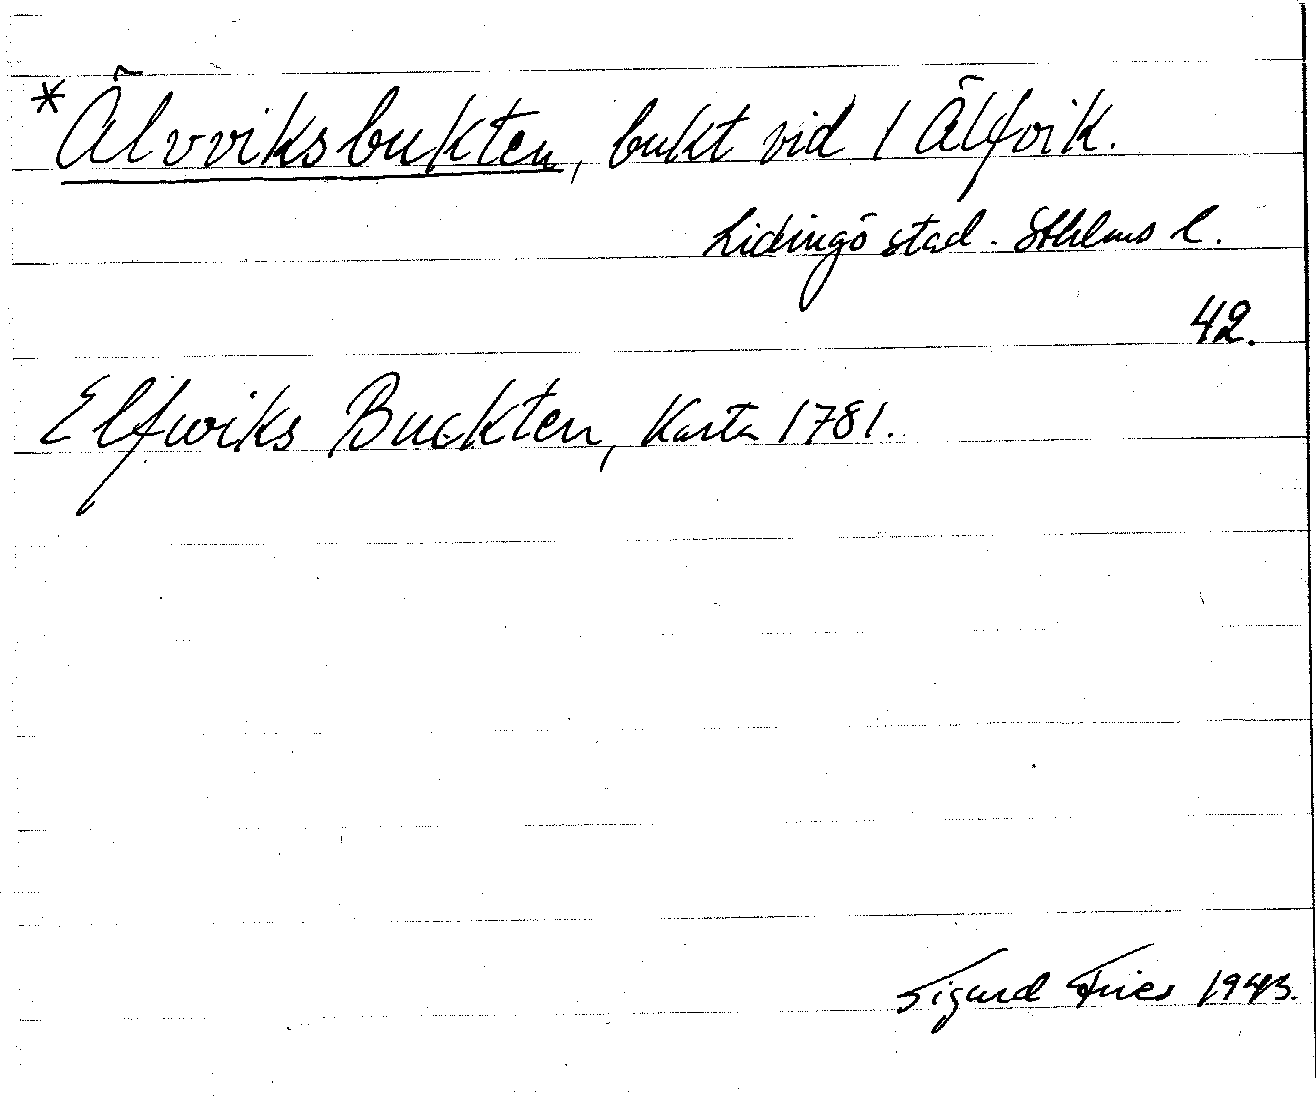 *Älvviksbukten, bukt vid 1 Älfvik.
Lidingö stad. Sthlms l.
42.
Elfwiks Buckten, Karta 1781.
Sigurd Fries 1943.